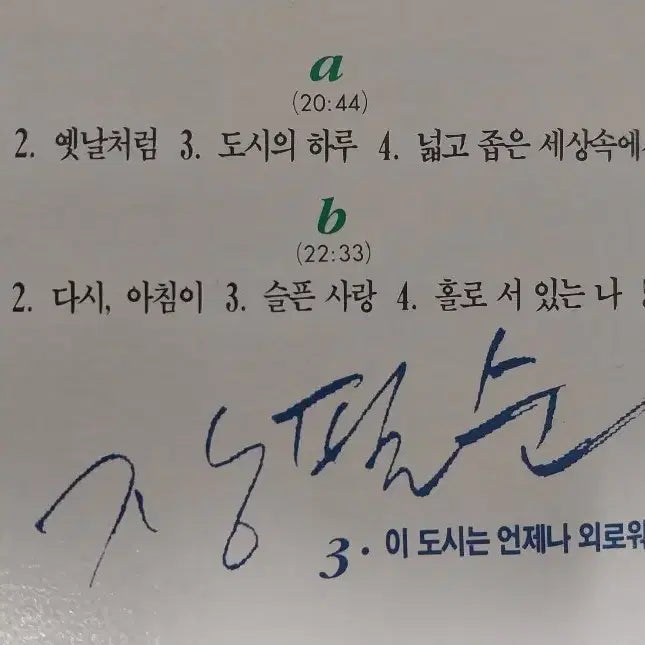 a
(20:44)
2. 옛날처럼 3. 도시의 하루 4. 넓고 좁은 세상속에
b
(22:33)
2. 다시, 아침이 3. 슬픈 사랑 4. 홀로 서 있는 나
장필순
3. 이 도시는 언제나 외로워